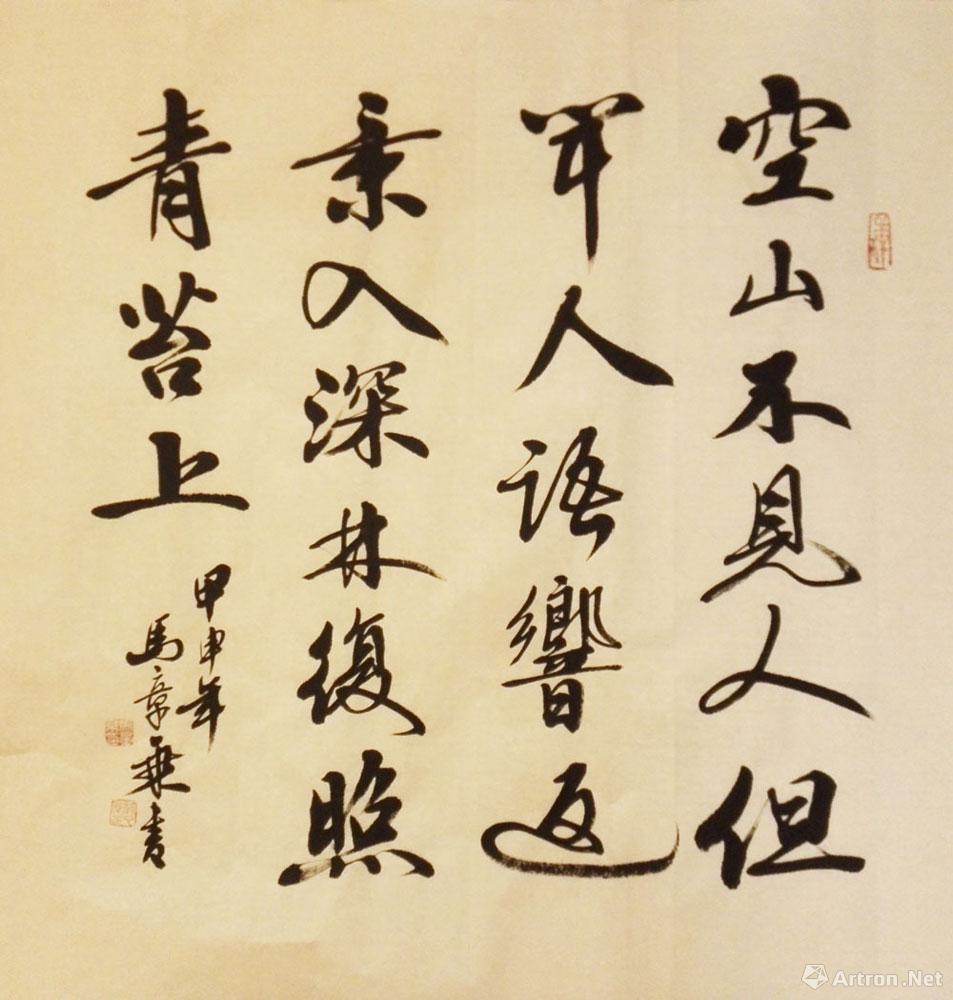 空山不見人但
聞人語響返
秉入深林復照
青苔上
甲申年
馬章乘書
Artron.Net